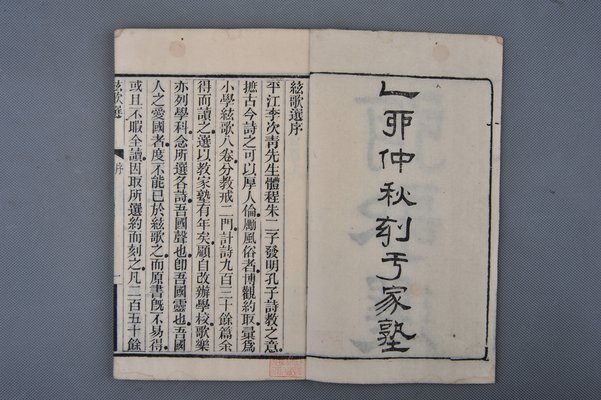 乙卯仲秋刻于家塾
絃歌選序
平江李次青先生體程朱二子發明孔子詩教之意
摭古今詩之可以厚人倫勵風俗者博觀約取彙爲
小學絃歌八卷分教戒二門計詩九百三十餘篇余
得而讀之選以教家塾有年矣顧自改辦學校歌樂
亦列學科念所選各詩吾國聲也卽吾國靈也吾國
人之愛國者度不能已於絃歌之而原書旣不易得
或且不暇全讀因取所選約而刻之凡二百五十餘
絃歌選
序
一